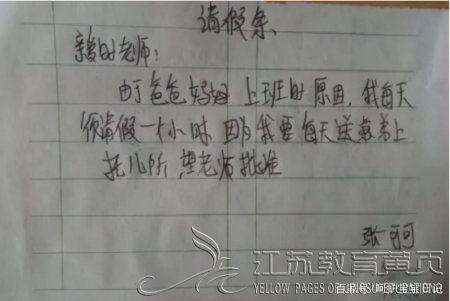 请假条
亲爱的老师:
由于爸爸妈妈 上班的 原因, 我每天
须请假一个小时 因为我要每天送弟弟上
托儿所 望老师批准
张可可
江苏教育黄页
YELLOW PAGES OF JIANGSU EDUCATION
百家号/